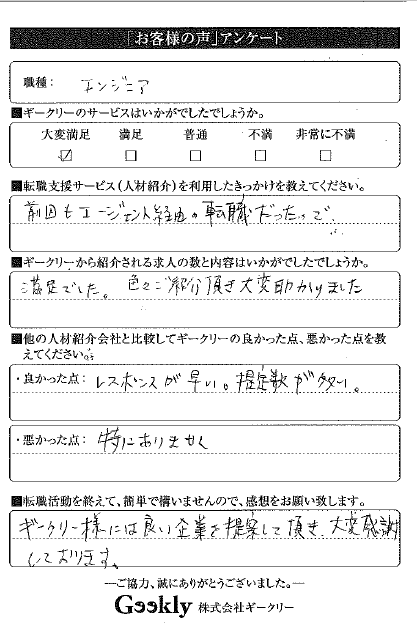 「お客様の声」アンケート
職種： エンジニア
■ギークリーのサービスはいかがでしたでしょうか。
大変満足 満足 普通 不満 非常に不満
☑ □ □ □ □
■転職支援サービス（人材紹介）を利用したきっかけを教えてください。
前回もエージェント経由の転職だったので
■ギークリーから紹介される求人の数と内容はいかがでしたでしょうか。
満足でした。 色々ご紹介頂き大変助かりました
■他の人材紹介会社と比較してギークリーの良かった点、悪かった点を教
えてください。
・良かった点： レスポンスが早い。提案数が多い。
・悪かった点： 特にありません
■転職活動を終えて、簡単で構いませんので、感想をお願い致します。
ギークリー様には良い企業を提案して頂き、大変感謝
しております。
―ご協力、誠にありがとうございました。―
Geekly 株式会社ギークリー